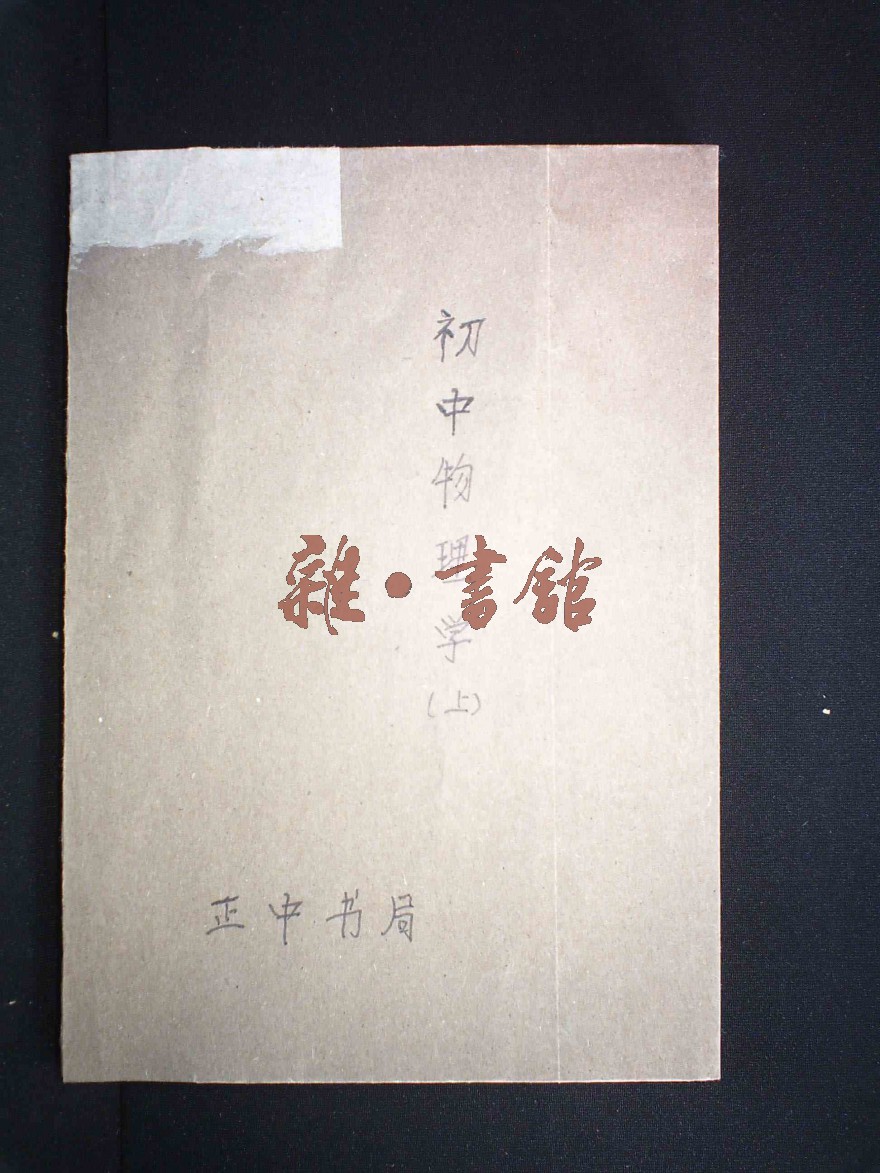 初中物理学
(上)
雜·書館
正中书局